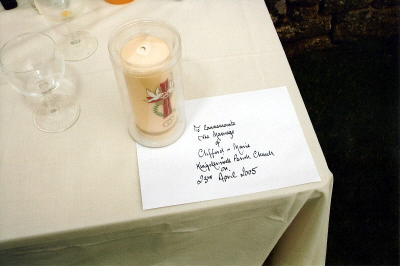 To Commemorate
the Marriage
of
Clifford & Marie
Parish Church
on
23rd April 2005